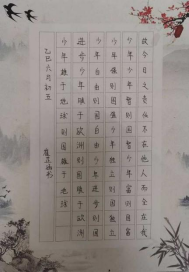 故今日之责任不在他人而全在我
少年少年智则国智少年富则国富
少年强则国强少年独立则国独立
少年自由则国自由少年进步则国
进步少年胜于欧洲则国胜于欧洲
少年雄于地球则国雄于地球
乙巳六月初五